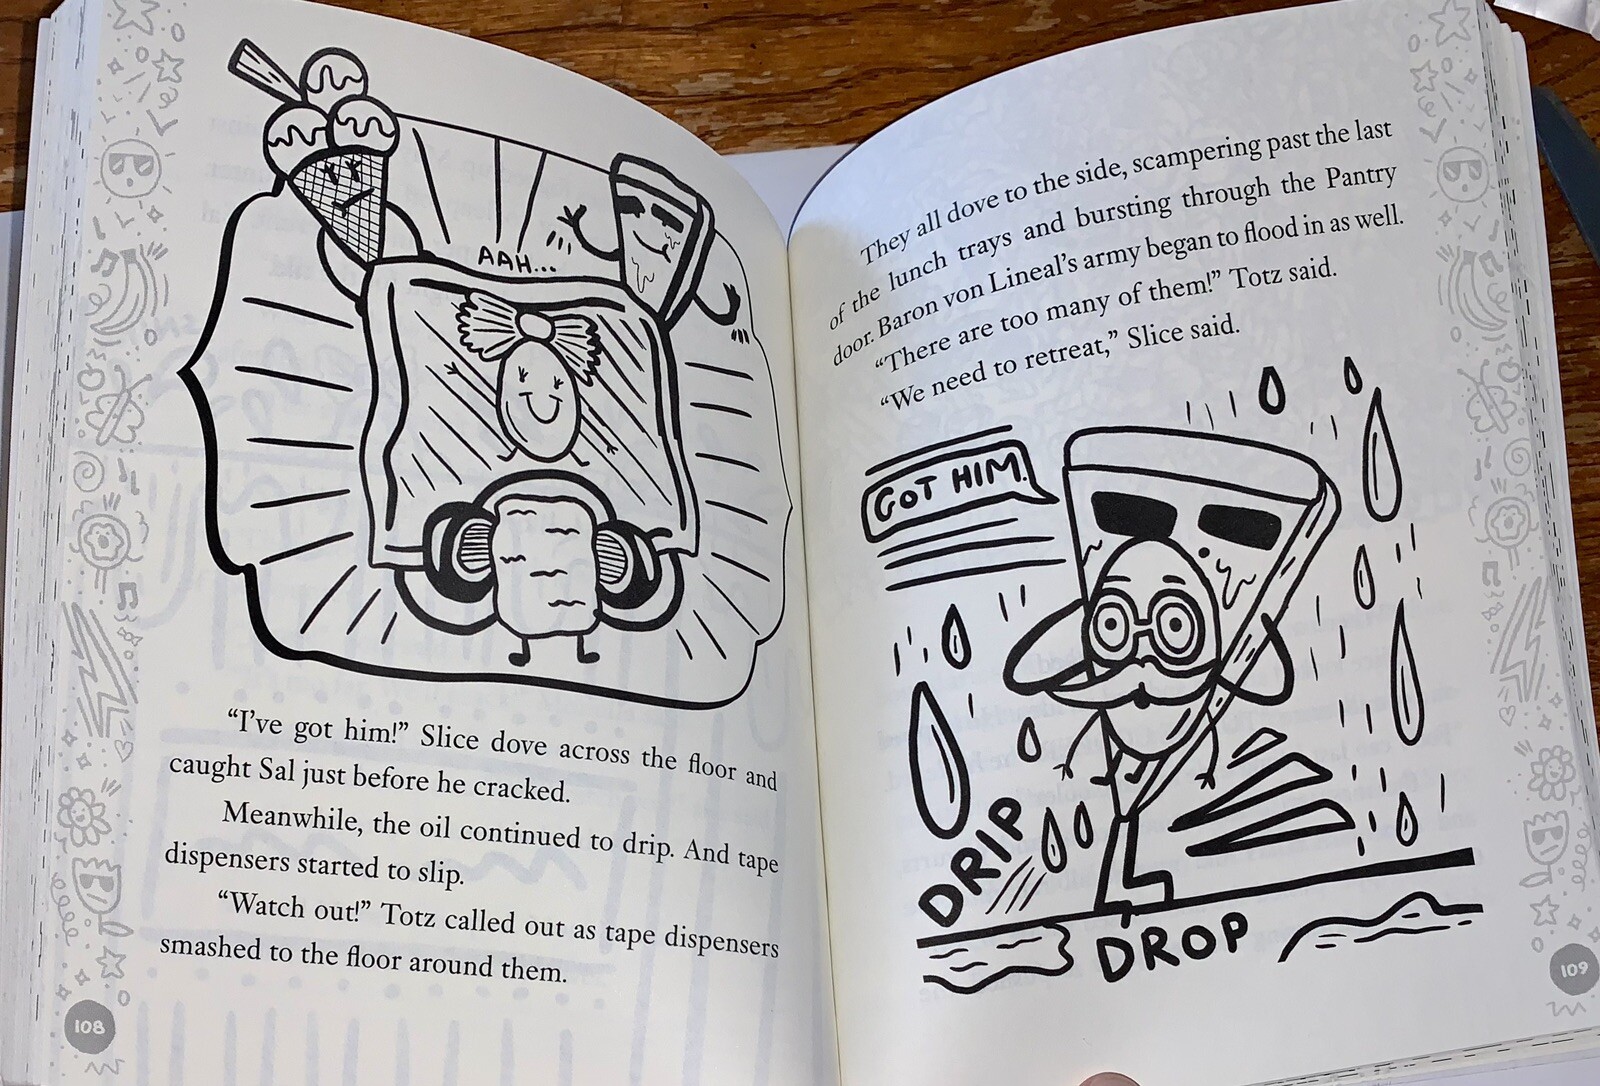 AAH...
“I’ve got him!” Slice dove across the floor and
caught Sal just before he cracked.
Meanwhile, the oil continued to drip. And tape
dispensers started to slip.
“Watch out!” Totz called out as tape dispensers
smashed to the floor around them.
108
They all dove to the side, scampering past the last
of the lunch trays and bursting through the Pantry
door. Baron von Lineal’s army began to flood in as well.
“There are too many of them!” Totz said.
“We need to retreat,” Slice said.
GOT HIM.
DRIP
DROP
109